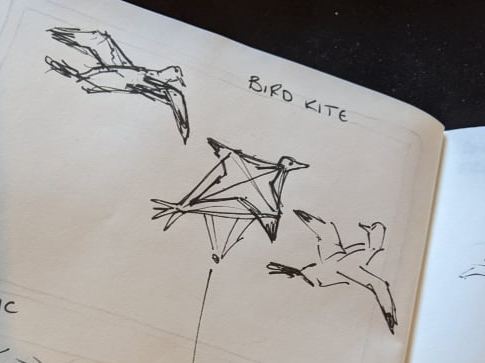 BIRD KITE
IC